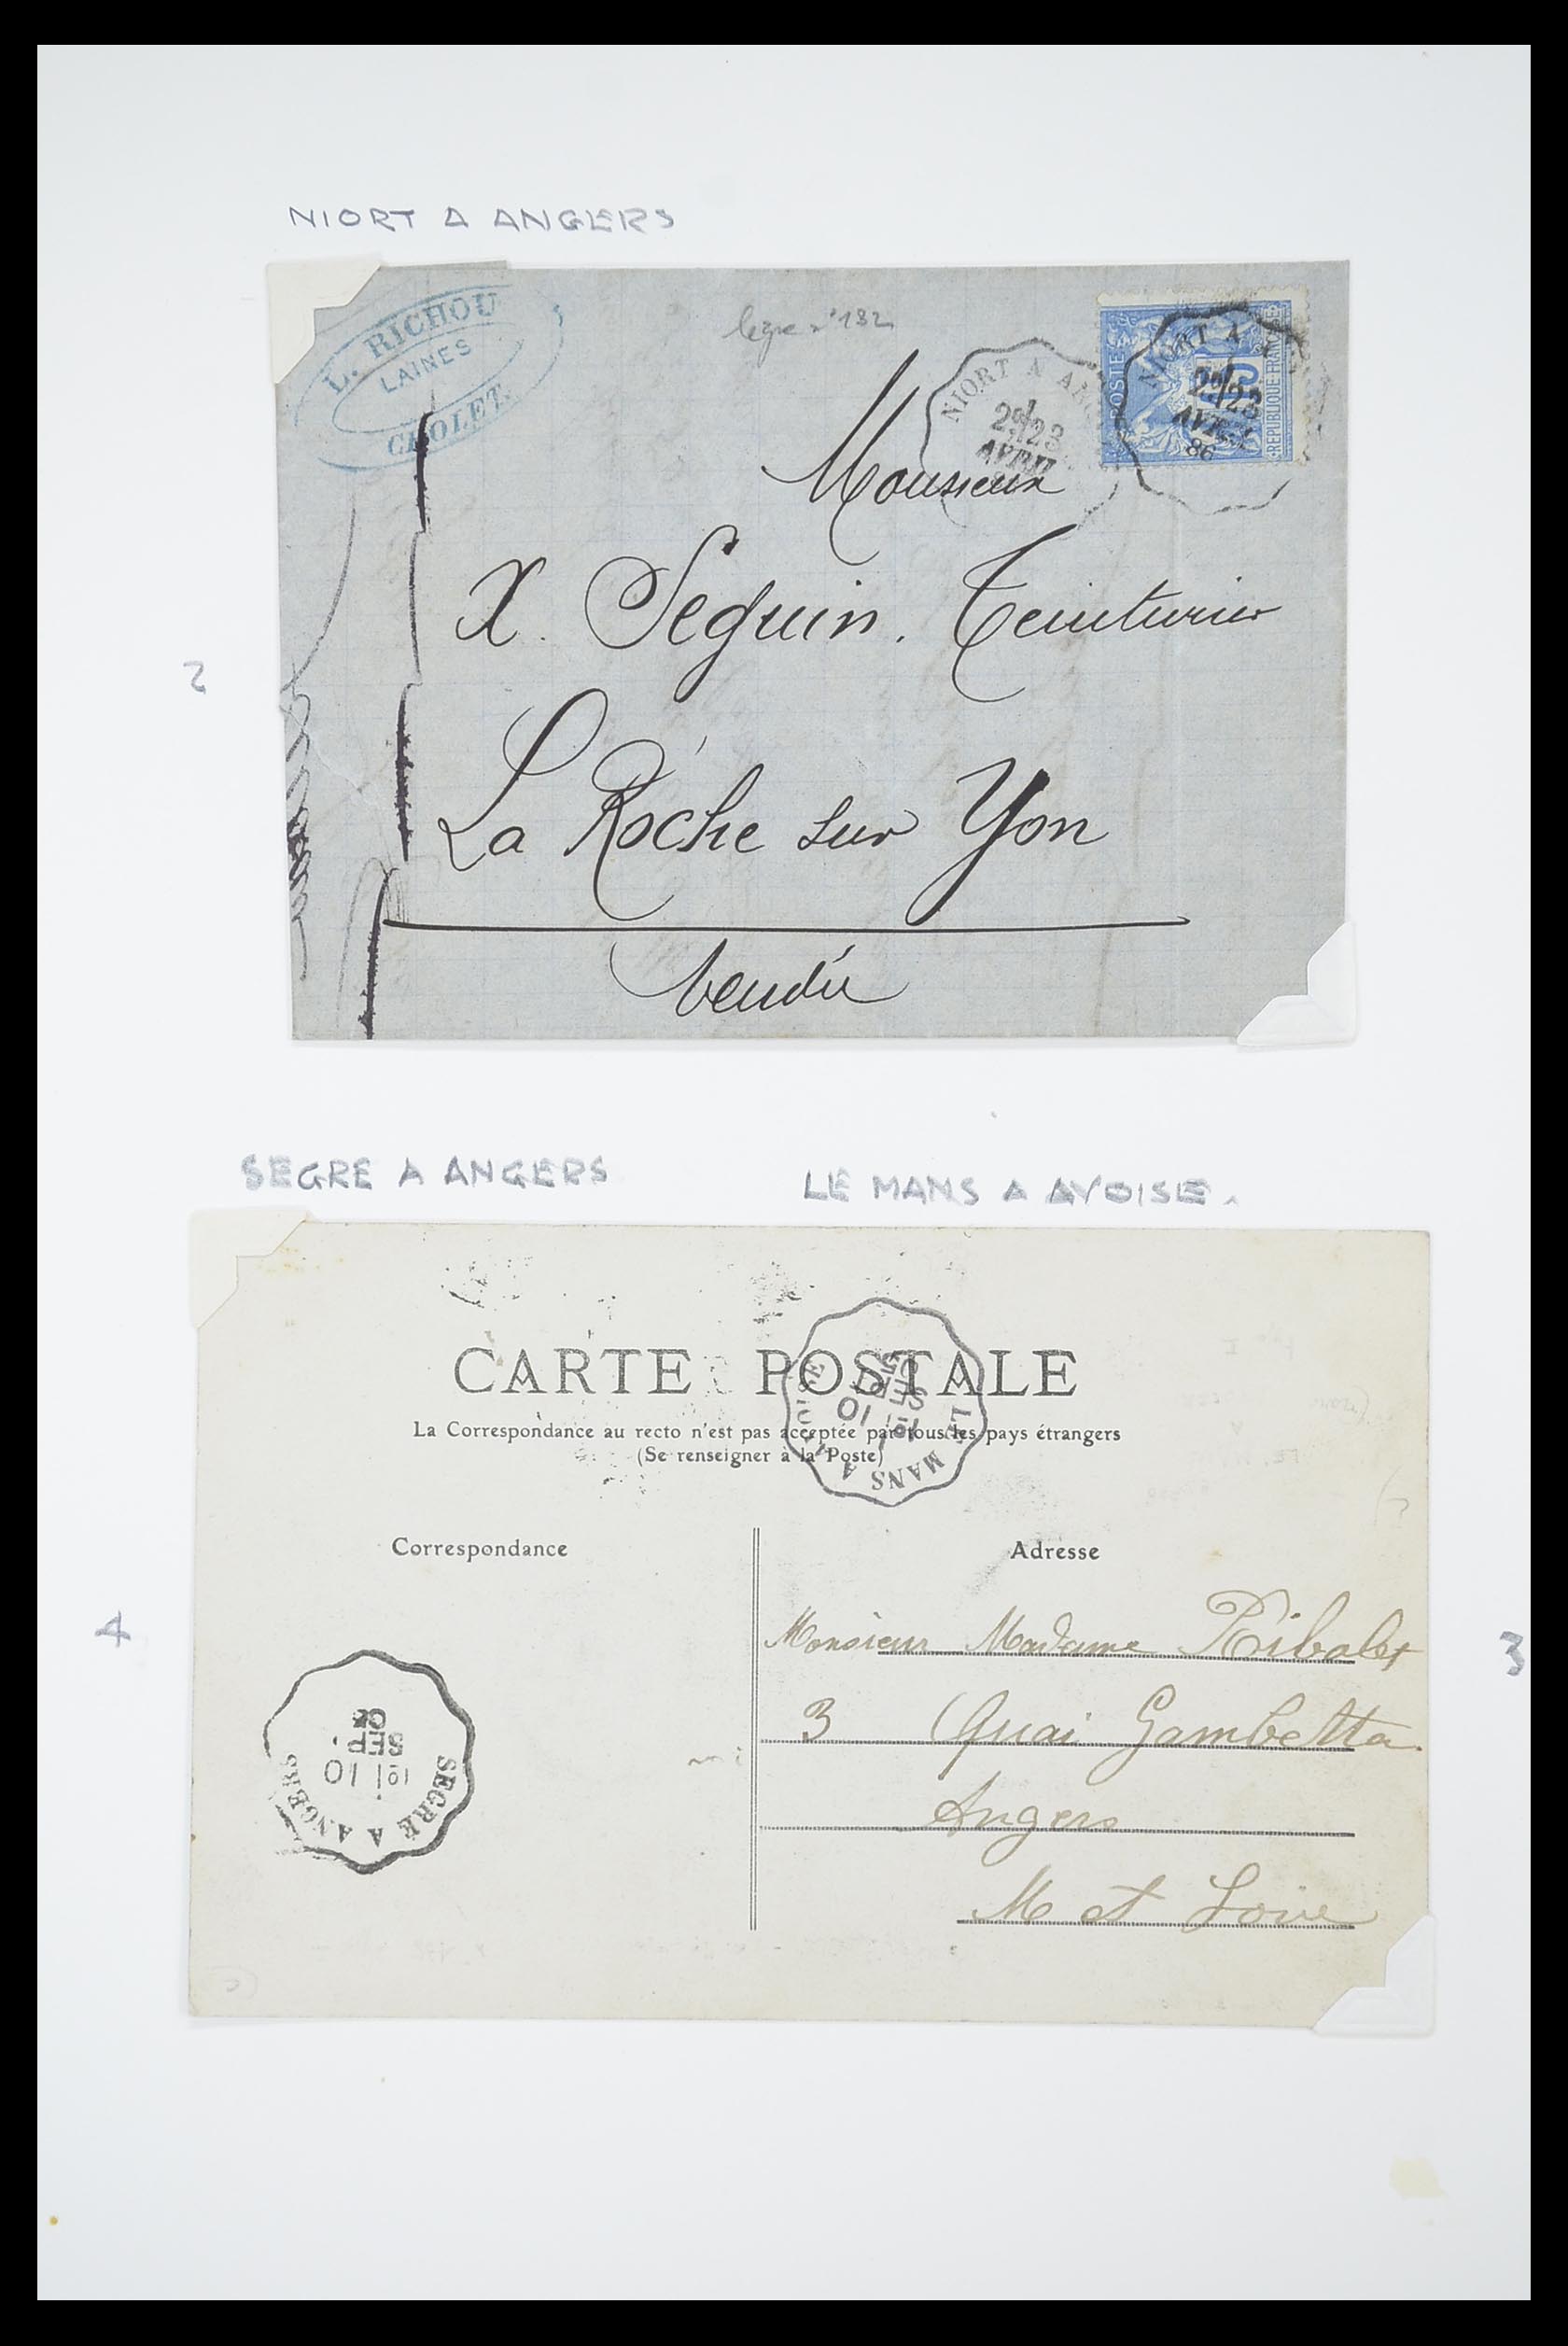 NIORT A ANGERS
L. RICHOU
LAINES
CHOLET.
NIORT A ANG
1
2º 23
AVRIL
POSTE
REPUBLIQUE FRANÇAISE
15
NIORT A
1
2º 23
AVRIL
86
Monsieur
X. Seguin. Teinturier
2
La Roche sur Yon
Vendée
SEGRE A ANGERS
LE MANS A AVOISE.
CARTE POSTALE
La Correspondance au recto n'est pas acceptée par tous les pays étrangers
(Se renseigner à la Poste)
LE MANS A
10
SEPT
05
Correspondance
Adresse
4
Monsieur Madame Ribalet
3
3 Quai Gambetta
Angers
M et Loire
SEGRE A ANGERS
1º 10
SEPT